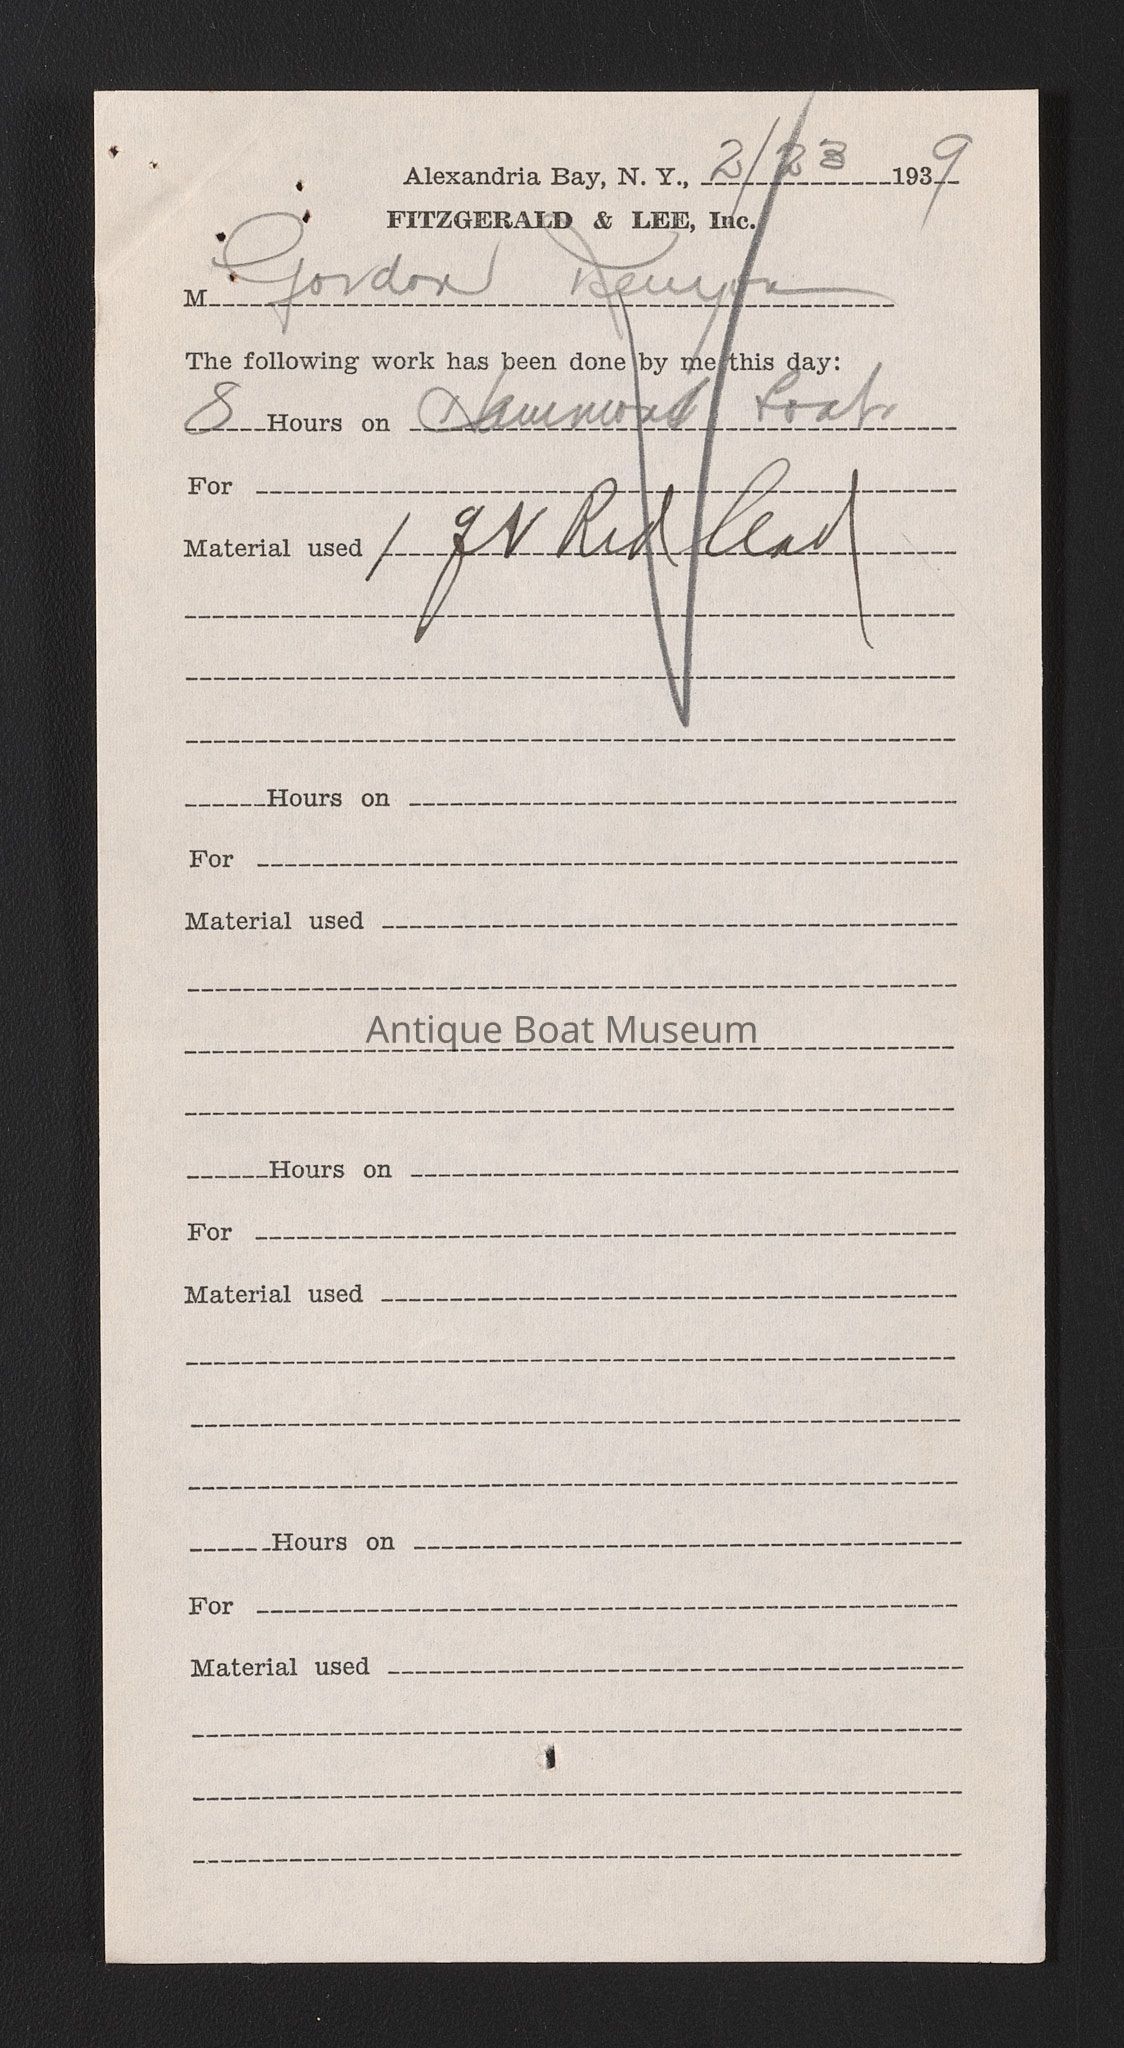 Alexandria Bay, N. Y., 2/23 1939
FITZGERALD & LEE, Inc.
M Gordon Kenyon
The following work has been done by me this day:
8 Hours on Hammond boat
For
Material used 1 qt Red lead
Hours on
For
Material used
Antique Boat Museum
Hours on
For
Material used
Hours on
For
Material used